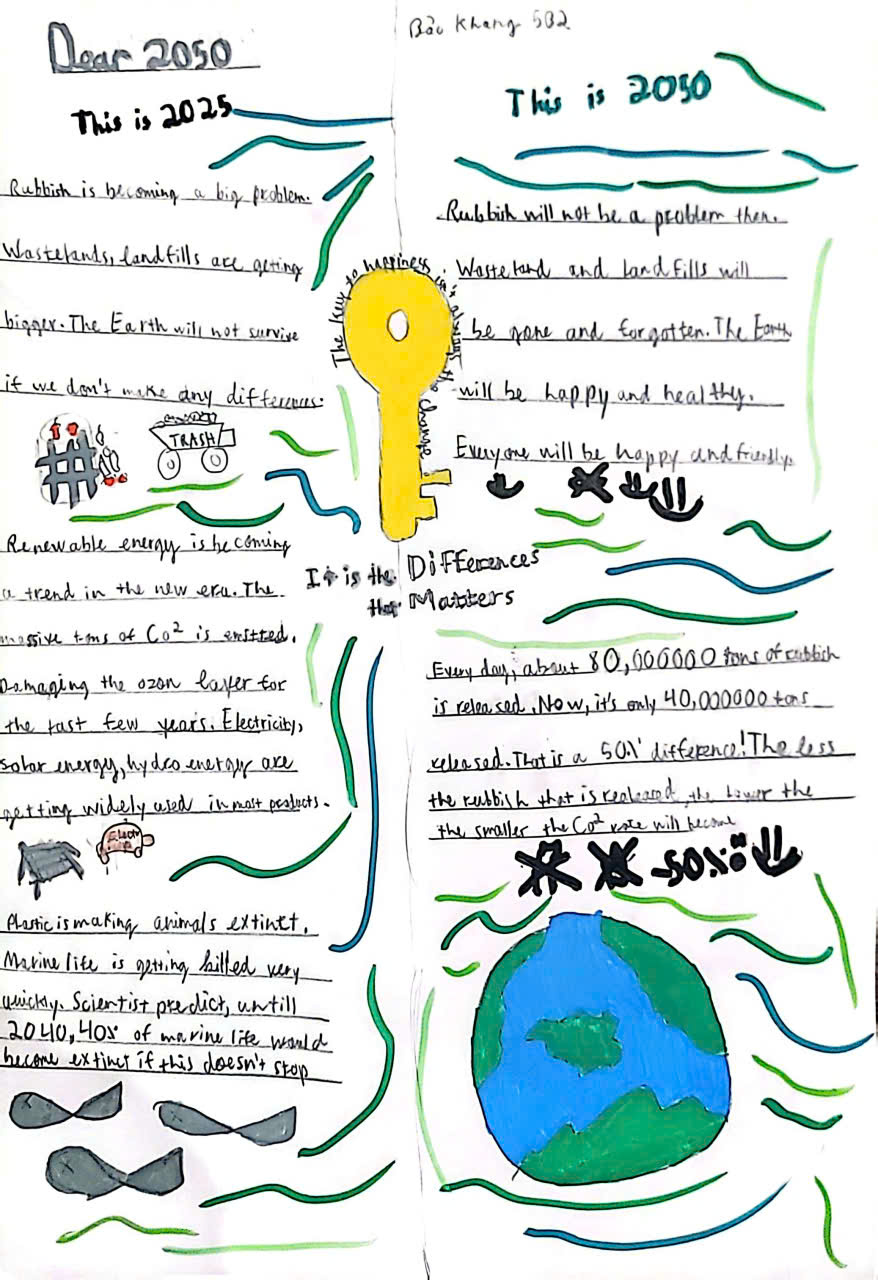 Bảo Khang 5B2
Dear 2050
This is 2025
Rubbish is becoming a big problem.
Wastelands, landfills are geting
bigger. The Earth will not survive
if we don't make any differences.
TRASH
Renewable energy is becoming
a trend in the new era. The
massive tons of Co² is emitted.
Damaging the ozon layer for
the last few years. Electricity,
solar energy, hydro energy are
getting widely used in most products.
Plastic is making animals extinct.
Marine life is getting killed very
quickly. Scientist predict, untill
2040, 40% of marine life would
become extinct if this doesn't stop
The key to happiness isn't always the change.
It is the Differences
that Matters
This is 2050
Rubbish will not be a problem then.
Wasteland and landfills will
be gone and forgotten. The Earth
will be happy and healthy.
Everyone will be happy and friendly.
Every day, about 80,000000 tons of rubbish
is released. Now, it's only 40,000000 tons
released. That is a 50% difference! The less
the rubbish that is realeased, the lower the
the smaller the Co² rate will become
-50%